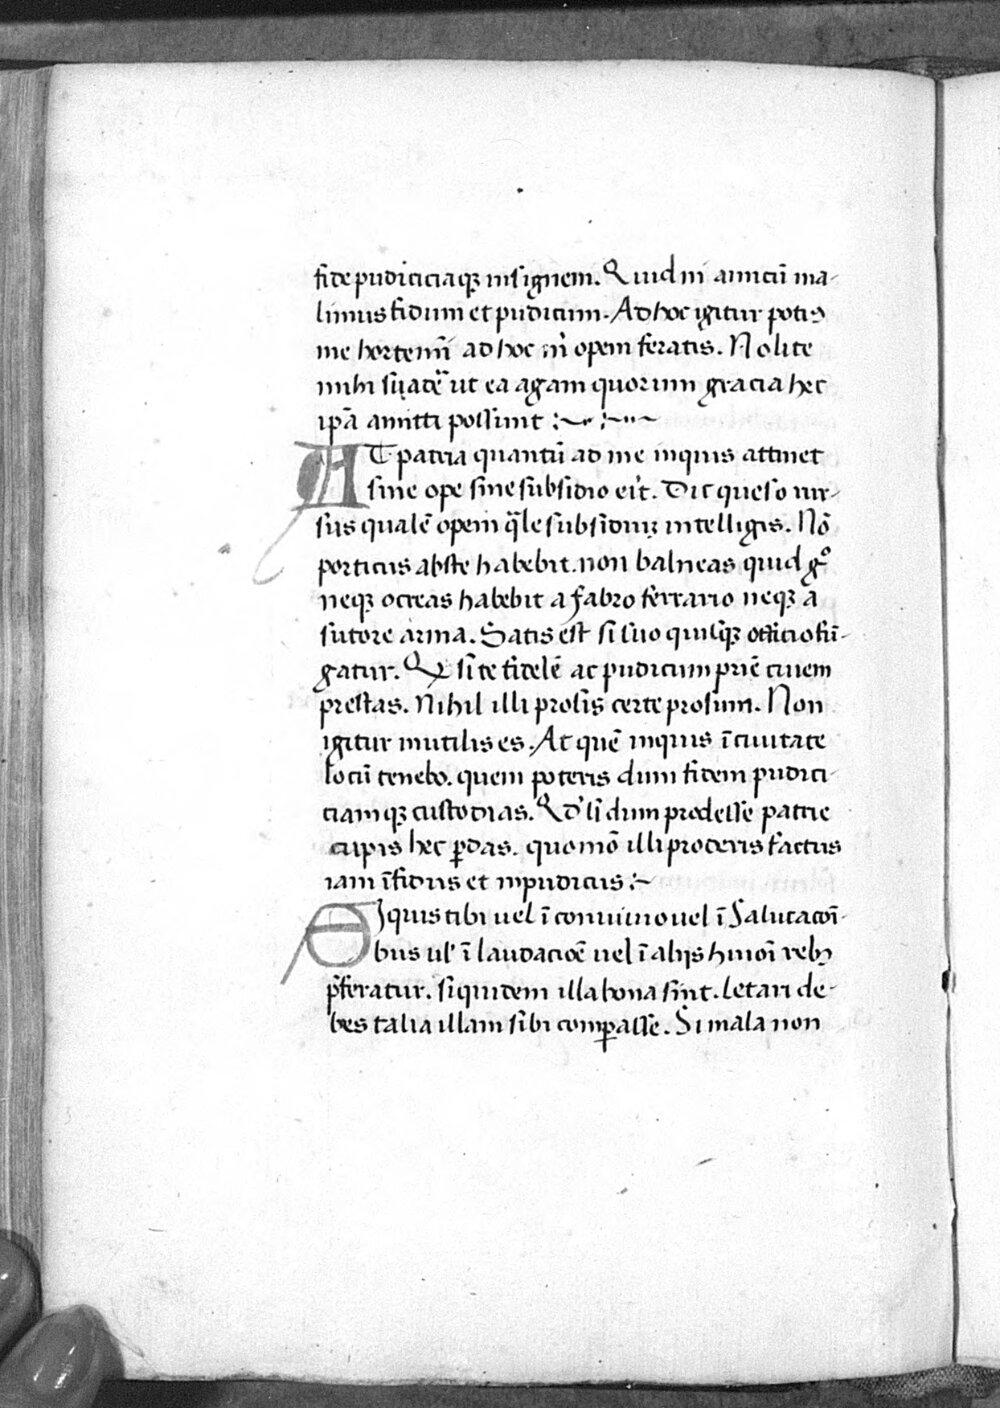 fide pudiciciaqꝫ insignem. Quid ni amicū ma-
limus fidum et pudicum. Ad hoc igitur potiꝰ
me hortemī ad hoc m̄ opem feratis. Nolite
mihi suadē ut ea agam quorum gracia hec
ip̄a amitti possunt :~ :~
AT patria quantū ad me inquis attinet
sine ope sine subsidio erit. Dic queso rur-
sus qualē opem q̄le subsidiuꝫ intelligis. Nō
porticus abste habebit. non balneas quid gͦ
neqꝫ ocreas habebit a fabro ferrario neqꝫ a
sutore arma. Satis est si suo quisqꝫ officio fū-
gatur. Qꝫ si te fidelē ac pudicum p̄riē ciuem
prestas. Nihil illi prosis certe prosum. Non
igitur inutilis es. At quē inquis ī ciuitate
locū tenebo. quem poteris dum fidem pudici-
ciamqꝫ custodias. Qd' si dum prodesse patrie
cupis hec ꝑdas. quomō illi proderis factus
iam īfidus et inpudicus :~
SIquis tibi uel ī conuiuio uel ī salutacōi-
bus ul' ī laudaciōe uel ī alijs hmōi rebꝫ
p̄feratur. siquidem illa bona sint. Letari de-
bes talia illam sibi comꝑasse. Si mala non